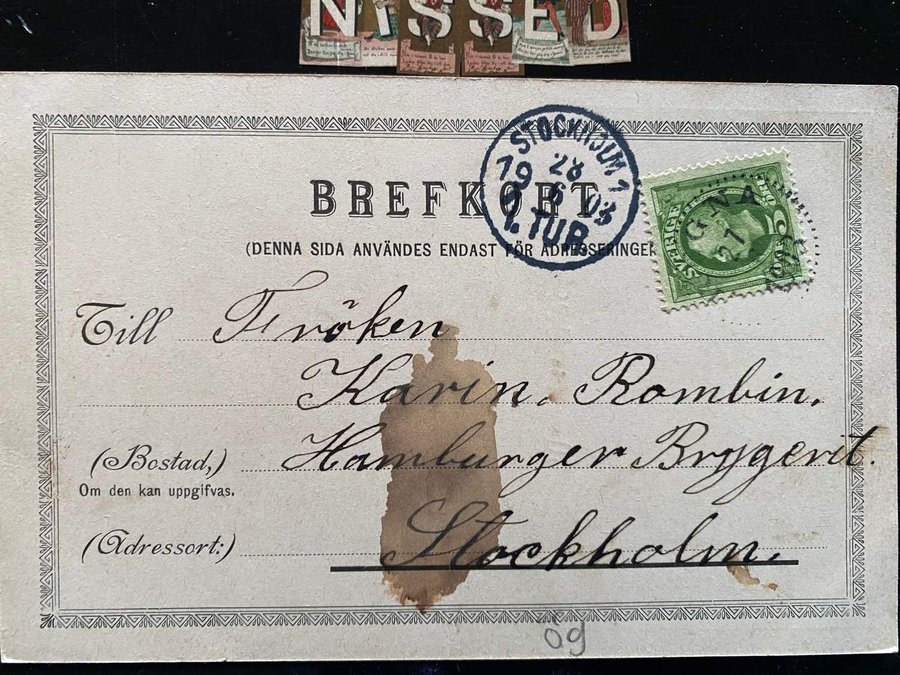 NISSED
BREFKORT
(DENNA SIDA ANVÄNDES ENDAST FÖR ADRESSERINGEN
STOCKHOLM 1
28
19 6 03
1. TUR
SVERIGE
GNA
27
Till Fröken
Karin. Rombin.
(Bostad,)
Hamburger Brygerit.
Om den kan uppgifvas.
(Adressort:)
Stockholm.
Ög